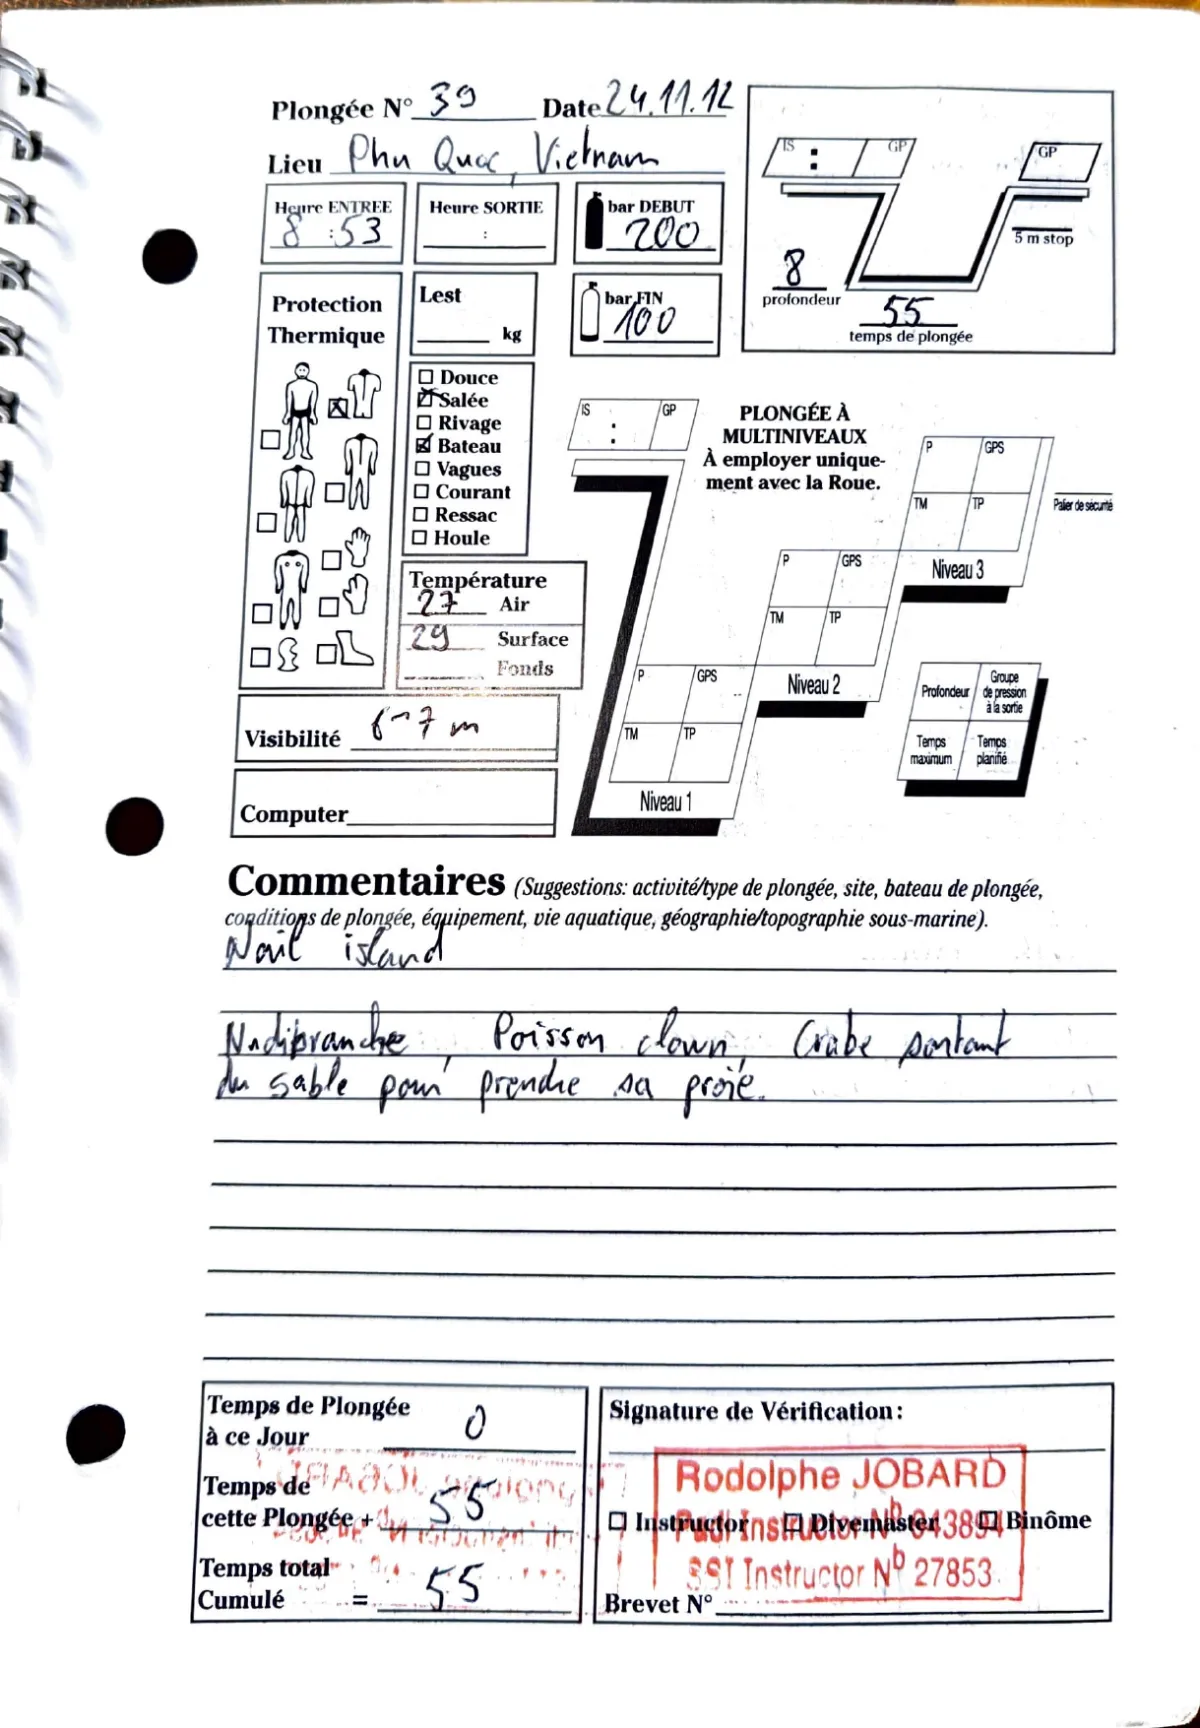 Plongée N° 39 Date 24.11.12
Lieu Phu Quoc, Vietnam
Heure ENTREE
8 :53
Heure SORTIE
:
bar DEBUT
200
Protection
Thermique
Lest
kg
bar FIN
100
IS : GP
GP
5 m stop
8
profondeur
55
temps de plongée
Douce
Salée
Rivage
Bateau
Vagues
Courant
Ressac
Houle
Température
27 Air
29 Surface
Fonds
Visibilité 6-7 m
Computer
IS : GP
PLONGÉE À
MULTINIVEAUX
À employer unique-
ment avec la Roue.
P GPS
TM TP
Niveau 1
P GPS
TM TP
Niveau 2
P GPS
TM TP
Niveau 3
Palier de sécurité
Profondeur
Groupe
de pression
à la sortie
Temps
maximum
Temps
planifié
Commentaires (Suggestions: activité/type de plongée, site, bateau de plongée,
conditions de plongée, équipement, vie aquatique, géographie/topographie sous-marine).
Nail island
Nudibranche, Poisson clown, Crabe sortant
du sable pour prendre sa proie.
Temps de Plongée
à ce Jour 0
Temps de
cette Plongée + 55
Temps total
Cumulé = 55
Signature de Vérification:
Rodolphe JOBARD
Instructor Divemaster Binôme
Padi Instructor N°
SSI Instructor N° 27853
Brevet N°